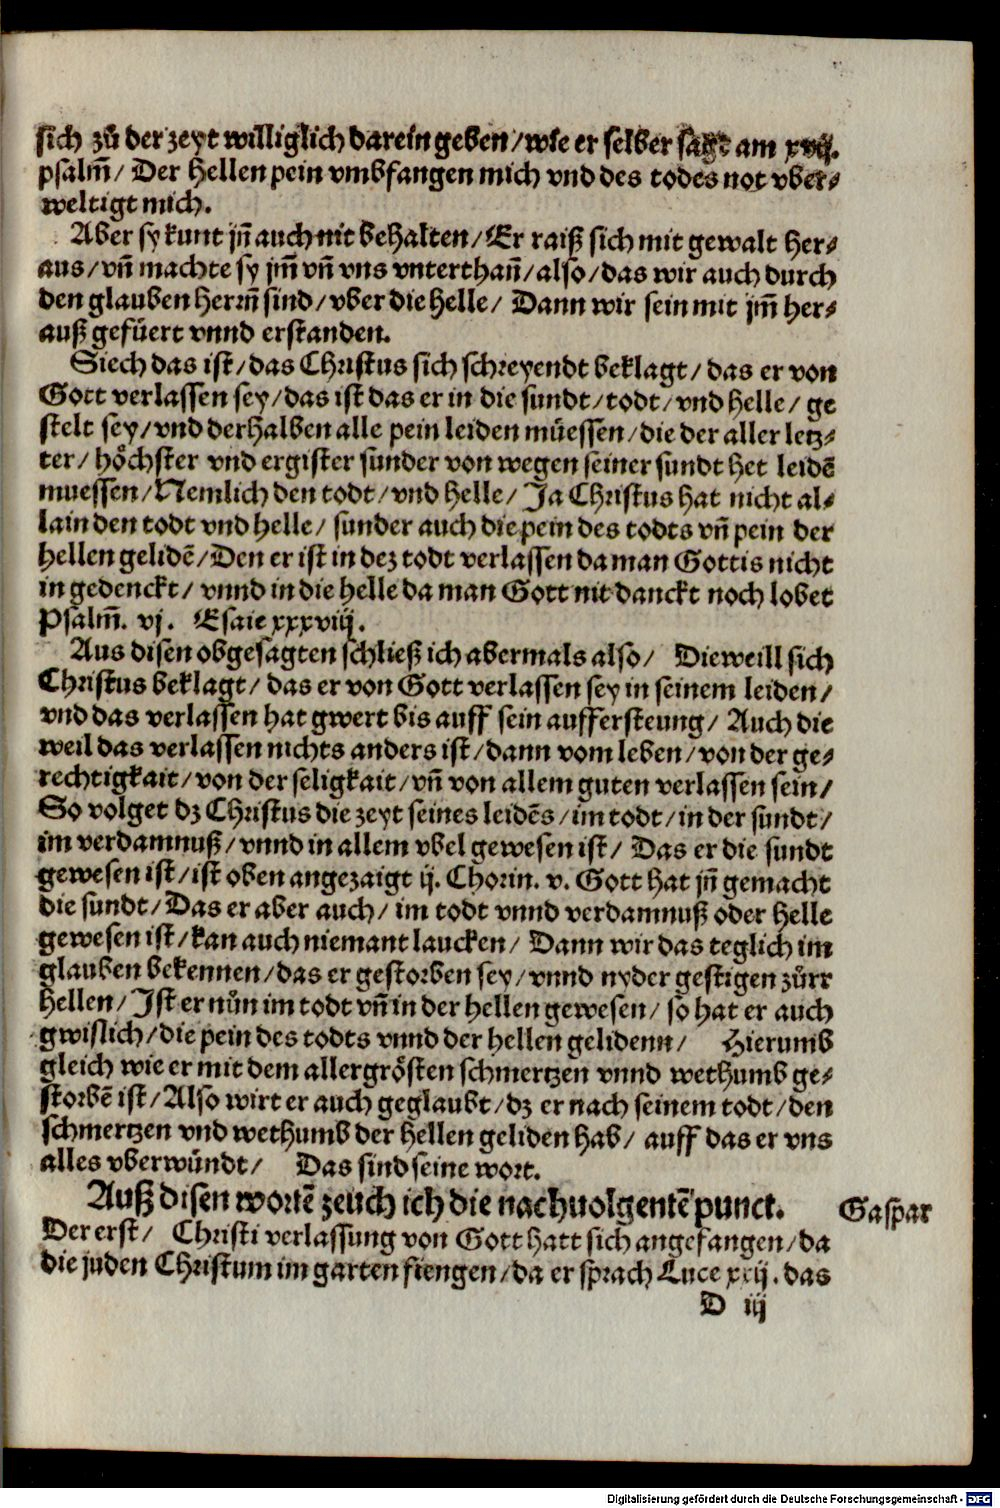 sich zů der zeyt williglich darein geben/wie er selber sagt am xvij.
psalm̄/ Der Hellen pein vmbfangen mich vnd des todes not vber⸗
weltigt mich.
Aber sy kunt jn̄ auch nit behalten/Er raiß sich mit gewalt her⸗
aus/vn̄ machte sy jm̄ vn̄ vns vnterthan̄/also/das wir auch durch
den glauben herrn̄ sind/vber die helle/ Dann wir sein mit jm̄ her⸗
auß gefüert vnnd erstanden.
Siech das ist/das Christus sich schreyendt beklagt/das er von
Gott verlassen sey/das ist das er in die sundt/todt/vnd helle/ ge
stelt sey/vnd derhalben alle pein leiden müessen/die der aller letz⸗
ter/höchster vnd ergister sunder von wegen seiner sundt het leidē
muessen/Nemlich den todt/vnd helle/ Ja Christus hat nicht al⸗
lain den todt vnd helle/ sunder auch die pein des todts vn̄ pein der
hellen gelidē/Den er ist in dez todt verlassen da man Gottis nicht
in gedenckt/ vnnd in die helle da man Gott nit danckt noch lobet
Psalm̄. vj. Esaie xxxviij.
Aus disen obgesagten schließ ich abermals also/ Dieweill sich
Christus beklagt/das er von Gott verlassen sey in seinem leiden/
vnd das verlassen hat gwert bis auff sein aufferstteung/ Auch die
weil das verlassen nichts anders ist/dann vom leben/von der ge⸗
rechtigkait/von der seligkait/vn̄ von allem guten verlassen sein/
So volget dz Christus die zeyt seines leidēs/im todt/in der sundt/
im verdamnuß/vnnd in allem vbel gewesen ist/ Das er die sundt
gewesen ist/ist oben angezaigt ij. Chorin. v. Gott hat jn̄ gemacht
die sundt/Das er aber auch/im todt vnnd verdamnuß oder helle
gewesen ist/kan auch niemant laucken/ Dann wir das teglich im
glauben bekennen/das er gestorben sey/vnnd nyder gestigen zůrr
hellen/Ist er nůn im todt vn̄ in der hellen gewesen/ so hat er auch
gwislich/die pein des todts vnnd der hellen gelidenn/ Hierumb
gleich wie er mit dem allergrösten schmertzen vnnd wethumb ge⸗
storbē ist/Also wirt er auch geglaubt/dz er nach seinem todt/den
schmertzen vnd wethumb der hellen geliden hab/ auff das er vns
alles vberwündt/ Das sind seine wort.
Auß disen wortē zeuch ich die nachuolgentē punct. Gaspar
Der erst/ Christi verlassung von Gott hatt sich angefangen/da
die juden Christum im garten fiengen/da er sprach Luce xxij. das
D iij
Digitalisierung gefördert durch die Deutsche Forschungsgemeinschaft - DFG